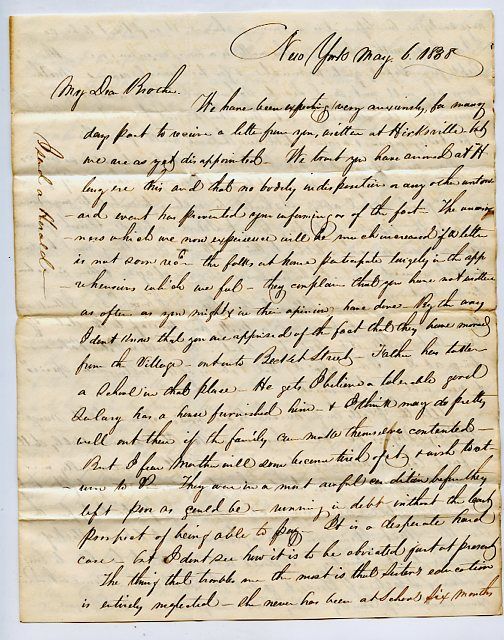 New York May 6. 1838
My Dear Brother.
We have been expecting very anxiously, for many
days past to receive a letter from you, written at Hicksville but
we are as yet disappointed - We trust you have arrived at H
long ere this and that no bodily indisposition or any other untow
- ard event has prevented your informing us of the fact - The uneasi
- ness which we now experience will be much increased if a letter
is not soon recd - the folks at home participate largely in the app
- rehensions which we feel - they complain that you have not written
as often as you might in their opinion have done - By the way
I dont know that you are apprised of the fact that they have moved
from the Village - out into Street - Father has taken
a School in that place - He gets I believe a tolerable good
Salary has a house furnished him - & I think may do pretty
well out there if the family can make themselves contented -
But I fear Mother will soon become tired of it & wish to ret
- urn to They were in a most awful condition before they
left poor as could be - running in debt without the least
prospect of being able to pay It is a desperate hard
case - but I dont see how it is to be obviated just at present
The thing that troubles me the most is that Sisters education
is entirely neglected - she never has been at School six months
Send a Herald